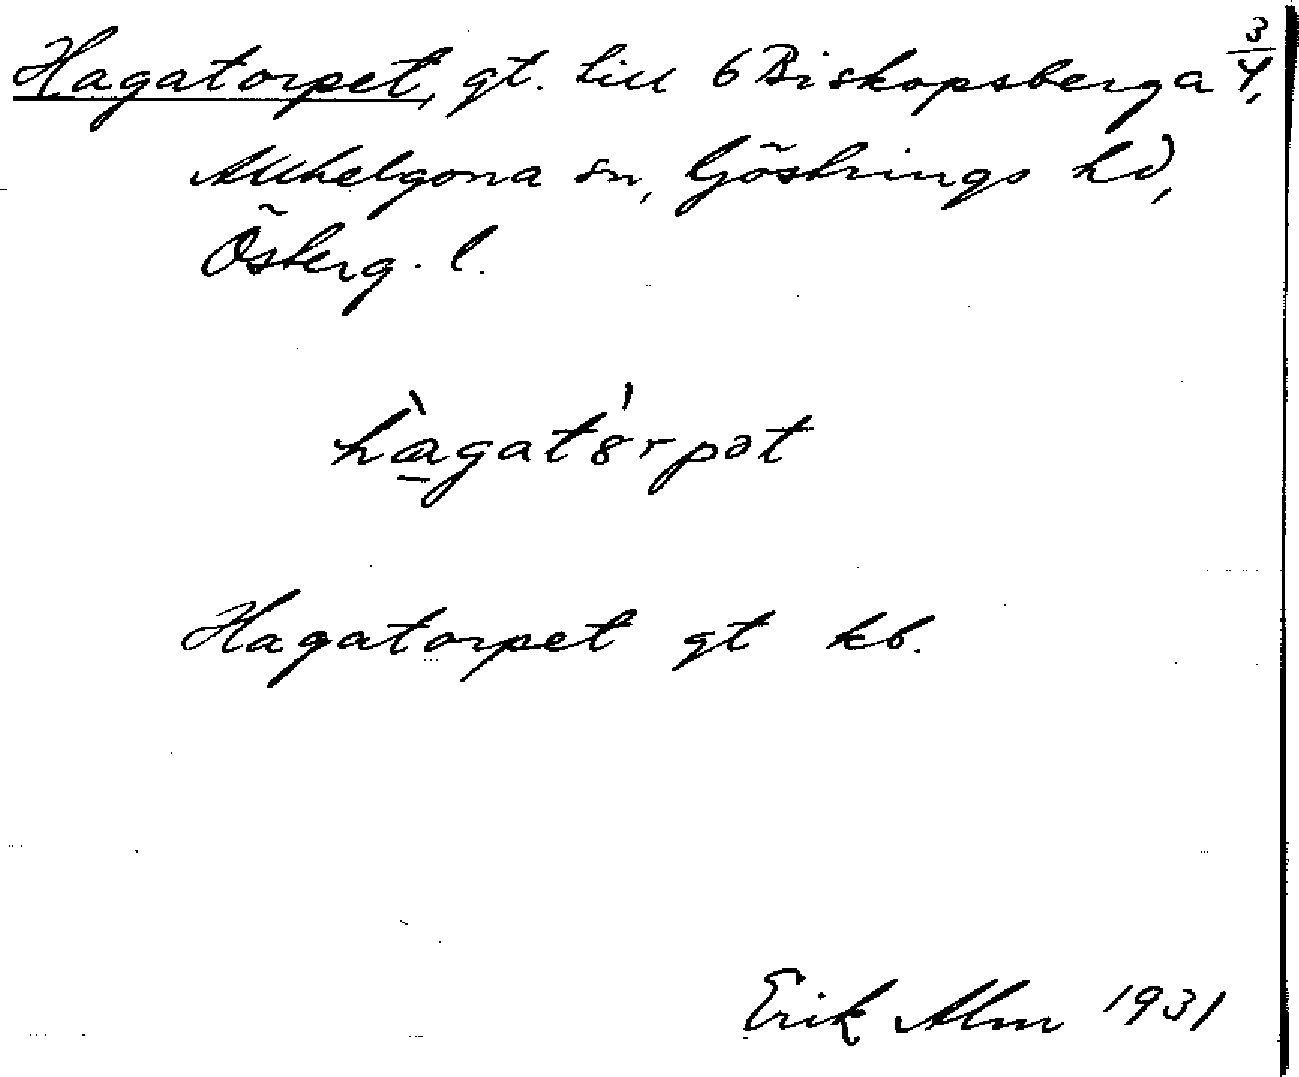 Hagatorpet, gt. till 6 Biskopsberga 3/4,
Allhelgona sn, Göstrings hd,
Österg. l.
hàgat8́rpət
Hagatorpet gt kb.
Erik Alm 1931